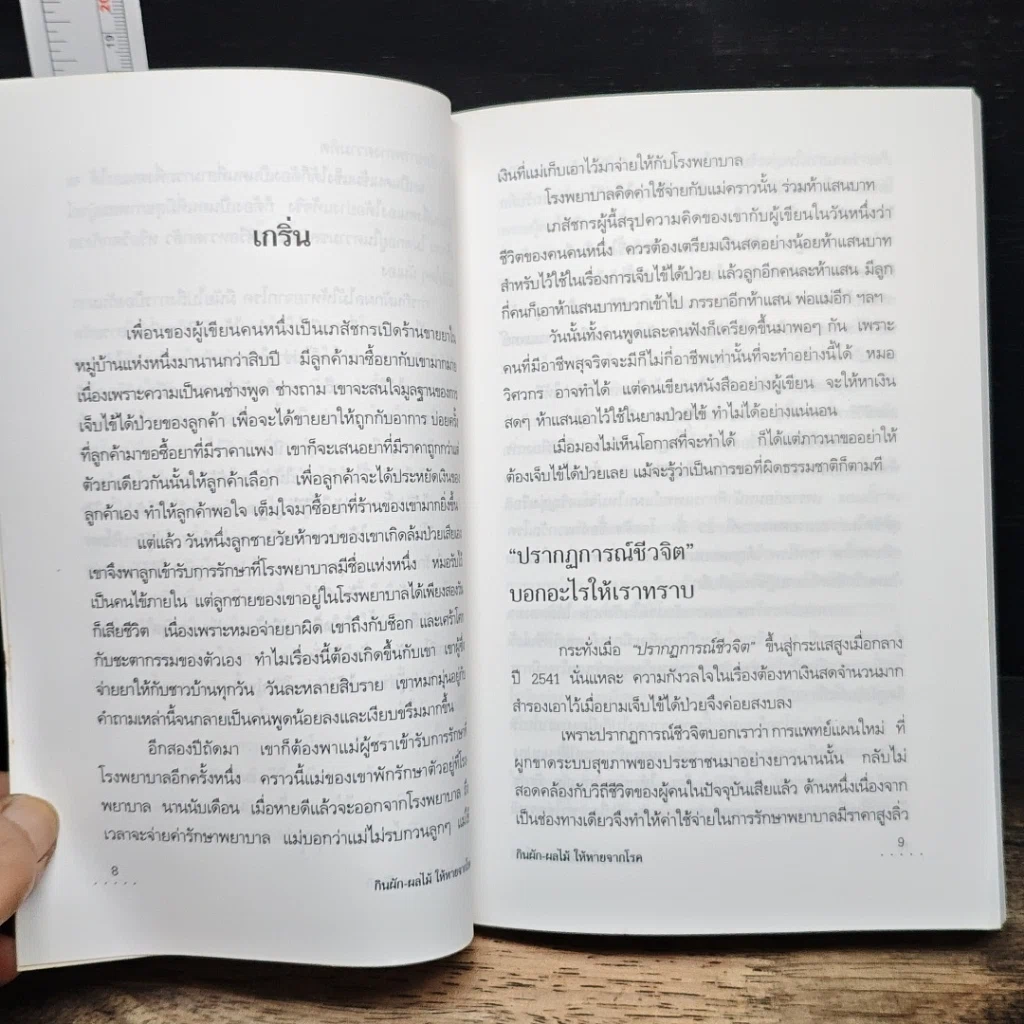 20
19
เกริ่น
เพื่อนของผู้เขียนคนหนึ่งเป็นเภสัชกรเปิดร้านขายยาใน
หมู่บ้านแห่งหนึ่งมานานกว่าสิบปี มีลูกค้ามาซื้อยากับเขามากมาย
เนื่องเพราะความเป็นคนช่างพูด ช่างถาม เขาจะสนใจมูลฐานของการ
เจ็บไข้ได้ป่วยของลูกค้า เพื่อจะได้ขายยาให้ถูกกับอาการ บ่อยครั้ง
ที่ลูกค้ามาขอซื้อยาที่มีราคาแพง เขาก็จะเสนอยาที่มีราคาถูกกว่าแต่
ตัวยาเดียวกันนั้นให้ลูกค้าเลือก เพื่อลูกค้าจะได้ประหยัดเงินของ
ลูกค้าเอง ทำให้ลูกค้าพอใจ เต็มใจมาซื้อยาที่ร้านของเขามากยิ่งขึ้น
แต่แล้ว วันหนึ่งลูกชายวัยห้าขวบของเขาเกิดล้มป่วยเสียเอง
เขาจึงพาลูกเข้ารับการรักษาที่โรงพยาบาลมีชื่อแห่งหนึ่ง หมอรับไว้
เป็นคนไข้ภายใน แต่ลูกชายของเขาอยู่ในโรงพยาบาลได้เพียงสองวัน
ก็เสียชีวิต เนื่องเพราะหมอจ่ายยาผิด เขาถึงกับช็อก และเศร้าโศก
กับชะตากรรมของตัวเอง ทำไมเรื่องนี้ต้องเกิดขึ้นกับเขา เขาผู้ซึ่ง
จ่ายยาให้กับชาวบ้านทุกวัน วันละหลายสิบราย เขาหมกมุ่นอยู่กับ
คำถามเหล่านี้จนกลายเป็นคนพูดน้อยลงและเงียบขรึมมากขึ้น
อีกสองปีถัดมา เขาก็ต้องพาแม่ผู้ชราเข้ารับการรักษาที่
โรงพยาบาลอีกครั้งหนึ่ง คราวนี้แม่ของเขาพักรักษาตัวอยู่ที่โรง
พยาบาล นานนับเดือน เมื่อหายดีแล้วจะออกจากโรงพยาบาล
เวลาจะจ่ายค่ารักษาพยาบาล แม่บอกว่าแม่ไม่รบกวนลูกๆ
8
กินผัก-ผลไม้ ให้หายจากโรค
เงินที่แม่เก็บเอาไว้มาจ่ายให้กับโรงพยาบาล
โรงพยาบาลคิดค่าใช้จ่ายกับแม่คราวนั้น ร่วมห้าแสนบาท
เภสัชกรผู้นี้สรุปความคิดของเขากับผู้เขียนในวันหนึ่งว่า
ชีวิตของคนคนหนึ่ง ควรต้องเตรียมเงินสดอย่างน้อยห้าแสนบาท
สำหรับไว้ใช้ในเรื่องการเจ็บไข้ได้ป่วย แล้วลูกอีกคนละห้าแสน มีลูก
กี่คนก็เอาห้าแสนบาทบวกเข้าไป ภรรยาอีกห้าแสน พ่อแม่อีก ฯลฯ
วันนั้นทั้งคนพูดและคนฟังก็เครียดขึ้นมาพอๆ กัน เพราะ
คนที่มีอาชีพสุจริตจะมีก็ไม่กี่อาชีพเท่านั้นที่จะทำอย่างนี้ได้ หมอ
วิศวกร อาจทำได้ แต่คนเขียนหนังสืออย่างผู้เขียน จะให้หาเงิน
สดๆ ห้าแสนเอาไว้ใช้ในยามป่วยไข้ ทำไม่ได้อย่างแน่นอน
เมื่อมองไม่เห็นโอกาสที่จะทำได้ ก็ได้แต่ภาวนาขออย่าให้
ต้องเจ็บไข้ได้ป่วยเลย แม้จะรู้ว่าเป็นการขอที่ผิดธรรมชาติก็ตามที
“ปรากฏการณ์ชีวจิต”
บอกอะไรให้เราทราบ
กระทั่งเมื่อ “ปรากฏการณ์ชีวจิต” ขึ้นสู่กระแสสูงเมื่อกลาง
ปี 2541 นั่นแหละ ความกังวลใจในเรื่องต้องหาเงินสดจำนวนมาก
สำรองเอาไว้เมื่อยามเจ็บไข้ได้ป่วยจึงค่อยสงบลง
เพราะปรากฏการณ์ชีวจิตบอกเราว่า การแพทย์แผนใหม่ ที่
ผูกขาดระบบสุขภาพของประชาชนมาอย่างยาวนานนั้น กลับไม่
สอดคล้องกับวิถีชีวิตของผู้คนในปัจจุบันเสียแล้ว ด้านหนึ่งเนื่องจาก
เป็นช่องทางเดียวจึงทำให้ค่าใช้จ่ายในการรักษาพยาบาลมีราคาสูงลิ่ว
กินผัก-ผลไม้ ให้หายจากโรค
9